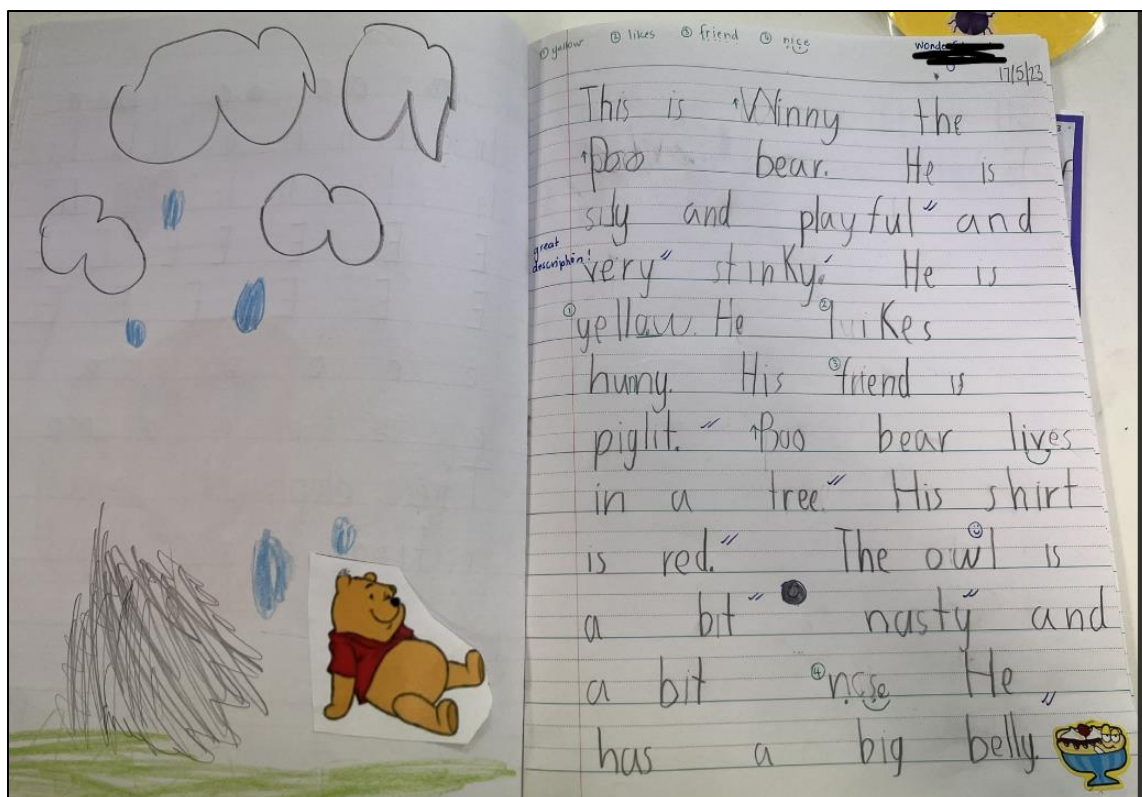 ① yellow ② likes ③ friend ④ nice
17/5/23
This is Winny the
Poo bear. He is
sily and playful and
great
description!
very stinky. He is
① yellaw. He ② likes
hunny. His ③ friend is
piglit. Boo bear lives
in a tree. His shirt
is red. The owl is
a bit nasty and
a bit ④ nise He
has a big belly.